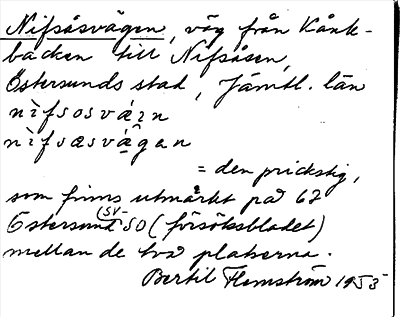 Nifsåsvägen, väg från Kånk-
backen till Nifsåsen,
Östersunds stad, Jämtl. län
nìfsosváɪn
nìfsæsvágan
= den prickstig,
som finns utmärkt på 62
Östersund SV-SO (försöksbladet)
mellan de två platserna.
Bertil Flemström 1953